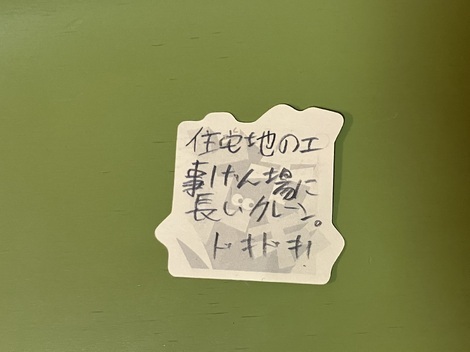 住宅地の工
事げん場に
長いクレーン。
ドキドキ!